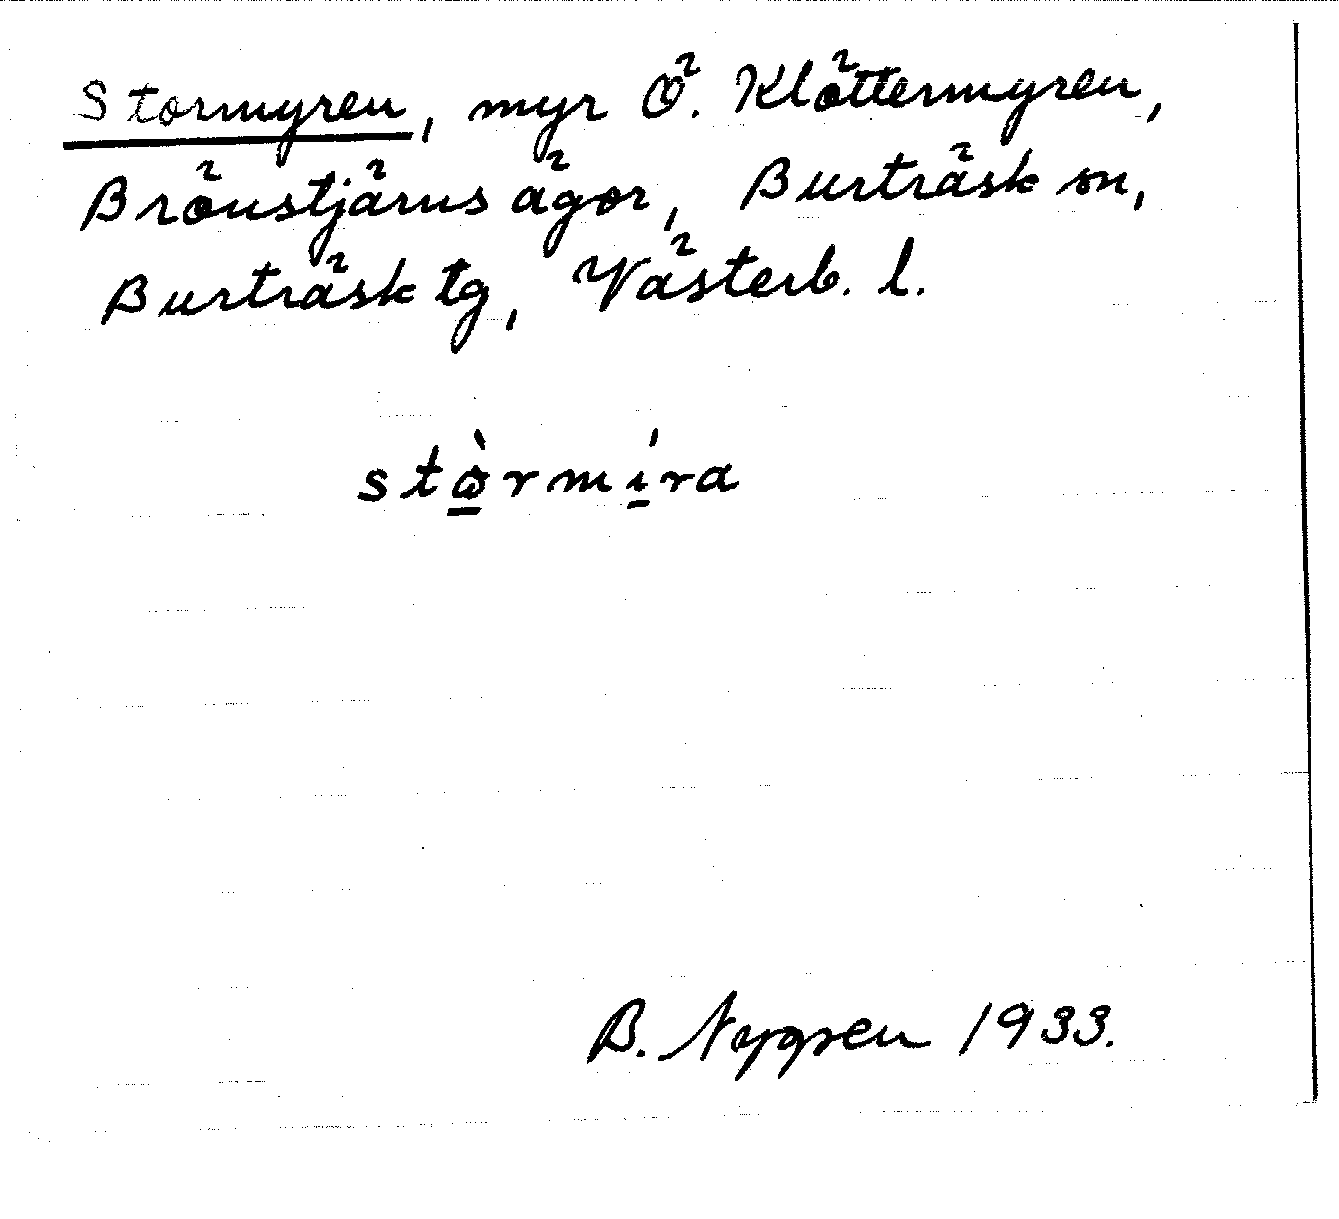 Stormyren, myr Ö. Klöttermyren,
Brönstjärns ägor, Burträsk sn,
Burträsk tg, Västerb. l.
stὼ̠rmí̠ra
B. Nygren 1933.